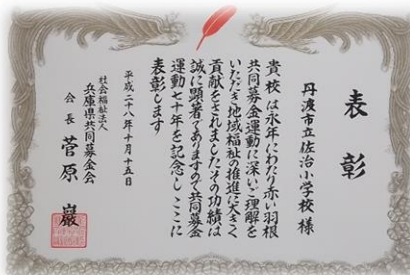 表彰
丹波市立佐治小学校 様
貴校は永年にわたり赤い羽根
共同募金運動に深いご理解を
いただき地域福祉の推進に大きく
貢献をされましたその功績は
誠に顕著でありますので共同募金
運動七十年を記念しここに
表彰します
平成二十八年十月十五日
社会福祉法人
兵庫県共同募金会
会長 菅原 巖